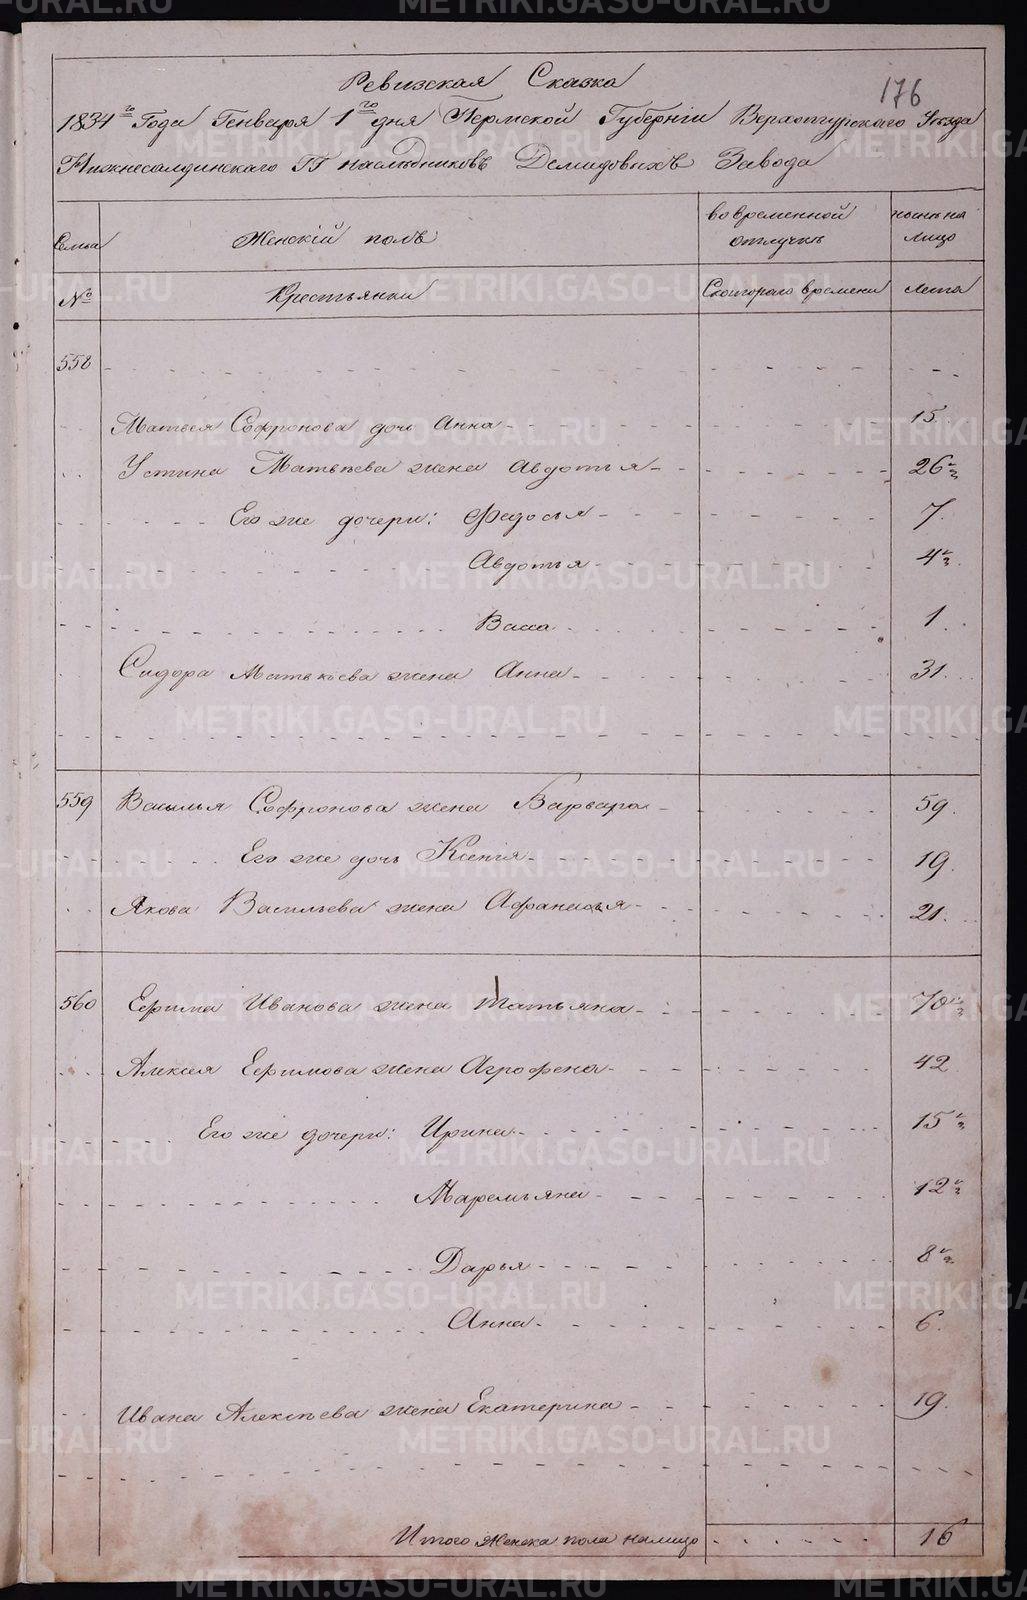 176
Ревизская Сказка
1834го Года Генваря 1го дня Пермской Губернiи Верхотурскаго Уезда
Нижнесалдинскаго ГГ наследниковъ Демидовыхъ Завода
Семьи Женскiй полъ во временной отлучкѣ ныне на лицо
№ Крестьянки Скоторого времени Лета
558
Матвея Софронова дочь Анна 15.
Устина Матвѣева жена Авдотья 26½
Его же дочери: Федосья 7.
Авдотья 4½
Васса 1
Сидора Матвѣева жена Анна 31.
559 Василья Софронова жена Варвара 59.
Его же дочь Ксенiя 19.
Якова Васильева жена Афанасья 21.
560 Ефима Иванова жена Татьяна 70½
Алексея Ефимова жена Агрофена 42
Его же дочери: Ирина 15½
Маремьяна 12½
Дарья 8½
Анна 6.
Ивана Алексѣева жена Екатерина 19.
Итого женска пола налицо 16
METRIKI.GASO-URAL.RU